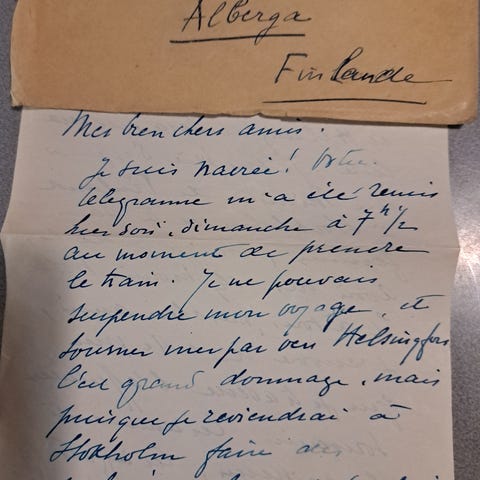 Alberga
Finlande
Mes bien chers amis.
Je suis navrée! Votre
télégramme m'a été remis
hier soir, dimanche à 7 h ½
au moment de prendre
le train. Je ne pouvais
suspendre mon voyage, et
tourner mes pas vers Helsingfors
C'est grand dommage, mais
puisque je reviendrai à
Stokholm faire des